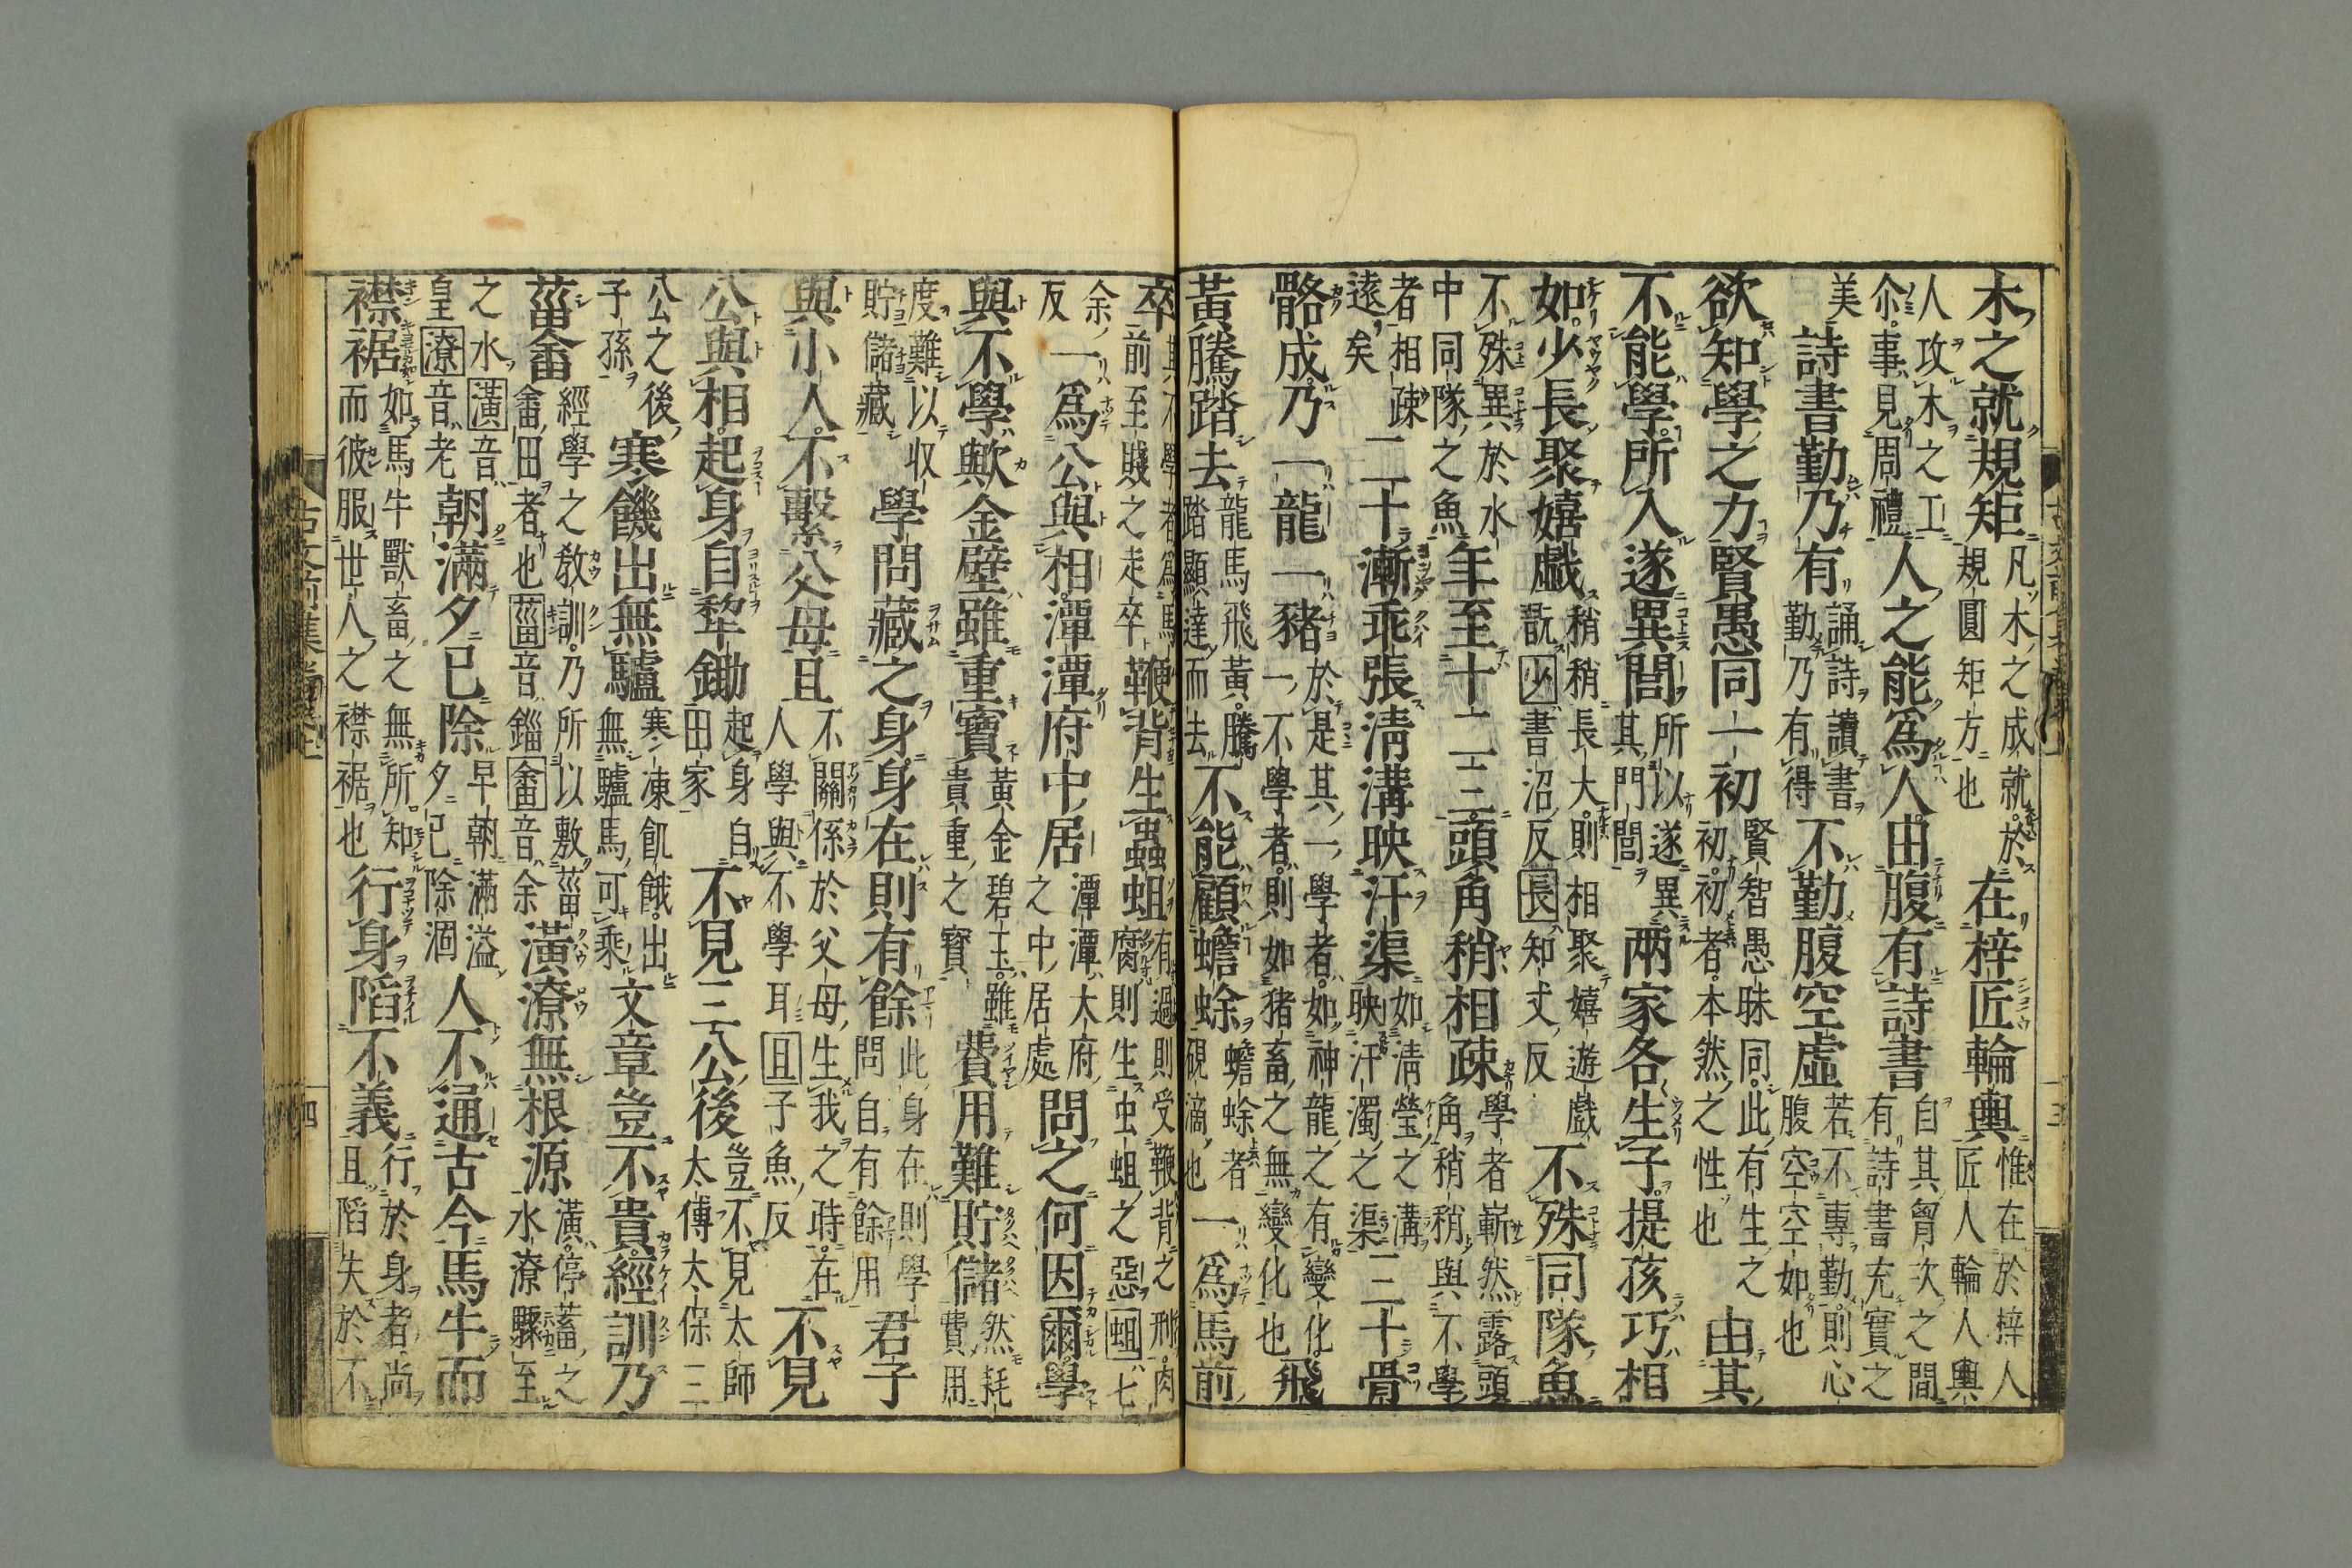 木之就規矩凡木之成就於規圓矩方也在梓匠輪輿惟在於梓人匠人輪人輿
人攻木之工尒事見周禮人之能爲人由腹有詩書自其胷次之間有詩書充實之
美詩書勤乃有誦詩讀書勤乃有得不勤腹空虛若不專勤則心腹空空如也
欲知學之力賢愚同一初賢智愚昧同此有生之初初者本然之性也由其
不能學所入遂異閭所以遂異其門閭兩家各生子提孩巧相
如少長聚嬉戲稍稍長大則相聚嬉遊戲翫少書沼反長知丈反不殊同隊魚
不殊異於水中同隊之魚年至十二三頭角稍相疎學者嶄然露頭角稍稍與不學
者相疎遠矣二十漸乖張淸溝映汙渠如淸瑩之溝映汙濁之渠三十骨
骼成乃一龍一豬於是其一學者如神龍之有變化一不學者則如猪畜之無變化也飛
黃騰踏去龍馬飛黃騰踏顯達而去不能顧蟾蜍蟾蜍者硯滴也一爲馬前
卒其不學者爲馬前至賤之走卒鞭背生蟲蛆有過則受鞭背之刑肉腐則生虫蛆之惡蛆七
余反一爲公與相潭潭府中居潭潭大府之中居處問之何因爾學
與不學歟金璧雖重寶黃金碧玉雖貴重之寶費用難貯儲然耗費用
度難以收貯儲藏學問藏之身身在則有餘此身在則學問自有餘用君子
與小人不繫父母且不關係於父母生我之時在人學與不學耳且子魚反不見
公與相起身自犂鋤起身自田家不見三公後豈不見太師太傅太保三
公之後子孫寒饑出無驢寒凍飢餓出無驢馬可乘文章豈不貴經訓乃
菑畬經學之敎訓乃所以敷菑畬田者也菑音錙畬音余潢潦無根源潢停蓄之水潦驟至
之水潢音皇潦音老朝滿夕已除早朝滿溢夕已除涸人不通古今馬牛而
襟裾如馬牛獸畜之無所知而彼服世人之襟裾也行身陷不義行於身者尚且陷失於不